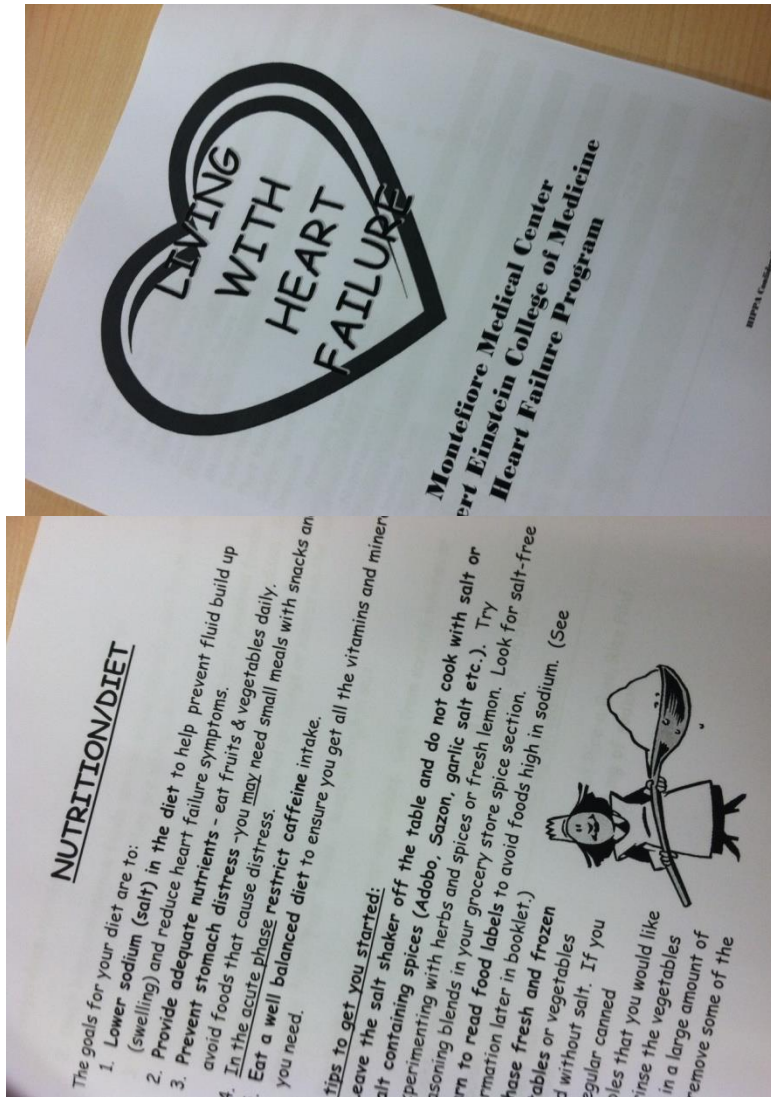 LIVING
WITH
HEART
FAILURE
Montefiore Medical Center
ert Einstein College of Medicine
Heart Failure Program
HIPPA
NUTRITION/DIET
The goals for your diet are to:
1. Lower sodium (salt) in the diet to help prevent fluid build up
(swelling) and reduce heart failure symptoms.
2. Provide adequate nutrients - eat fruits & vegetables daily.
3. Prevent stomach distress -you may need small meals with snacks an
avoid foods that cause distress.
4. In the acute phase restrict caffeine intake.
. Eat a well balanced diet to ensure you get all the vitamins and miner
you need.
tips to get you started:
eave the salt shaker off the table and do not cook with salt or
alt containing spices (Adobo, Sazon, garlic salt etc.). Try
xperimenting with herbs and spices or fresh lemon. Look for salt-free
asoning blends in your grocery store spice section.
rn to read food labels to avoid foods high in sodium. (See
rmation later in booklet.)
hase fresh and frozen
tables or vegetables
d without salt. If you
egular canned
bles that you would like
rinse the vegetables
in a large amount of
remove some of the